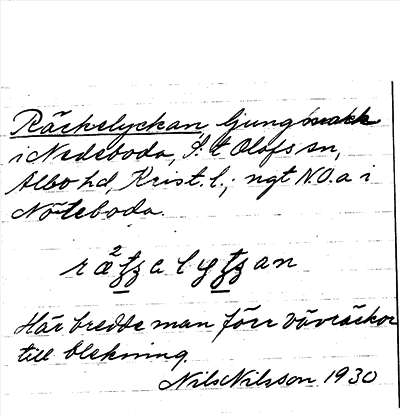 Räckelyckan, ljungbrakk
i Nedeboda, S:t Olofs sn,
Albo hd, Krist. l., ngt N.O. a i
Nöteboda.
Här bredde man förr vävräckor
till blekning.
Nils Nilsson 1930